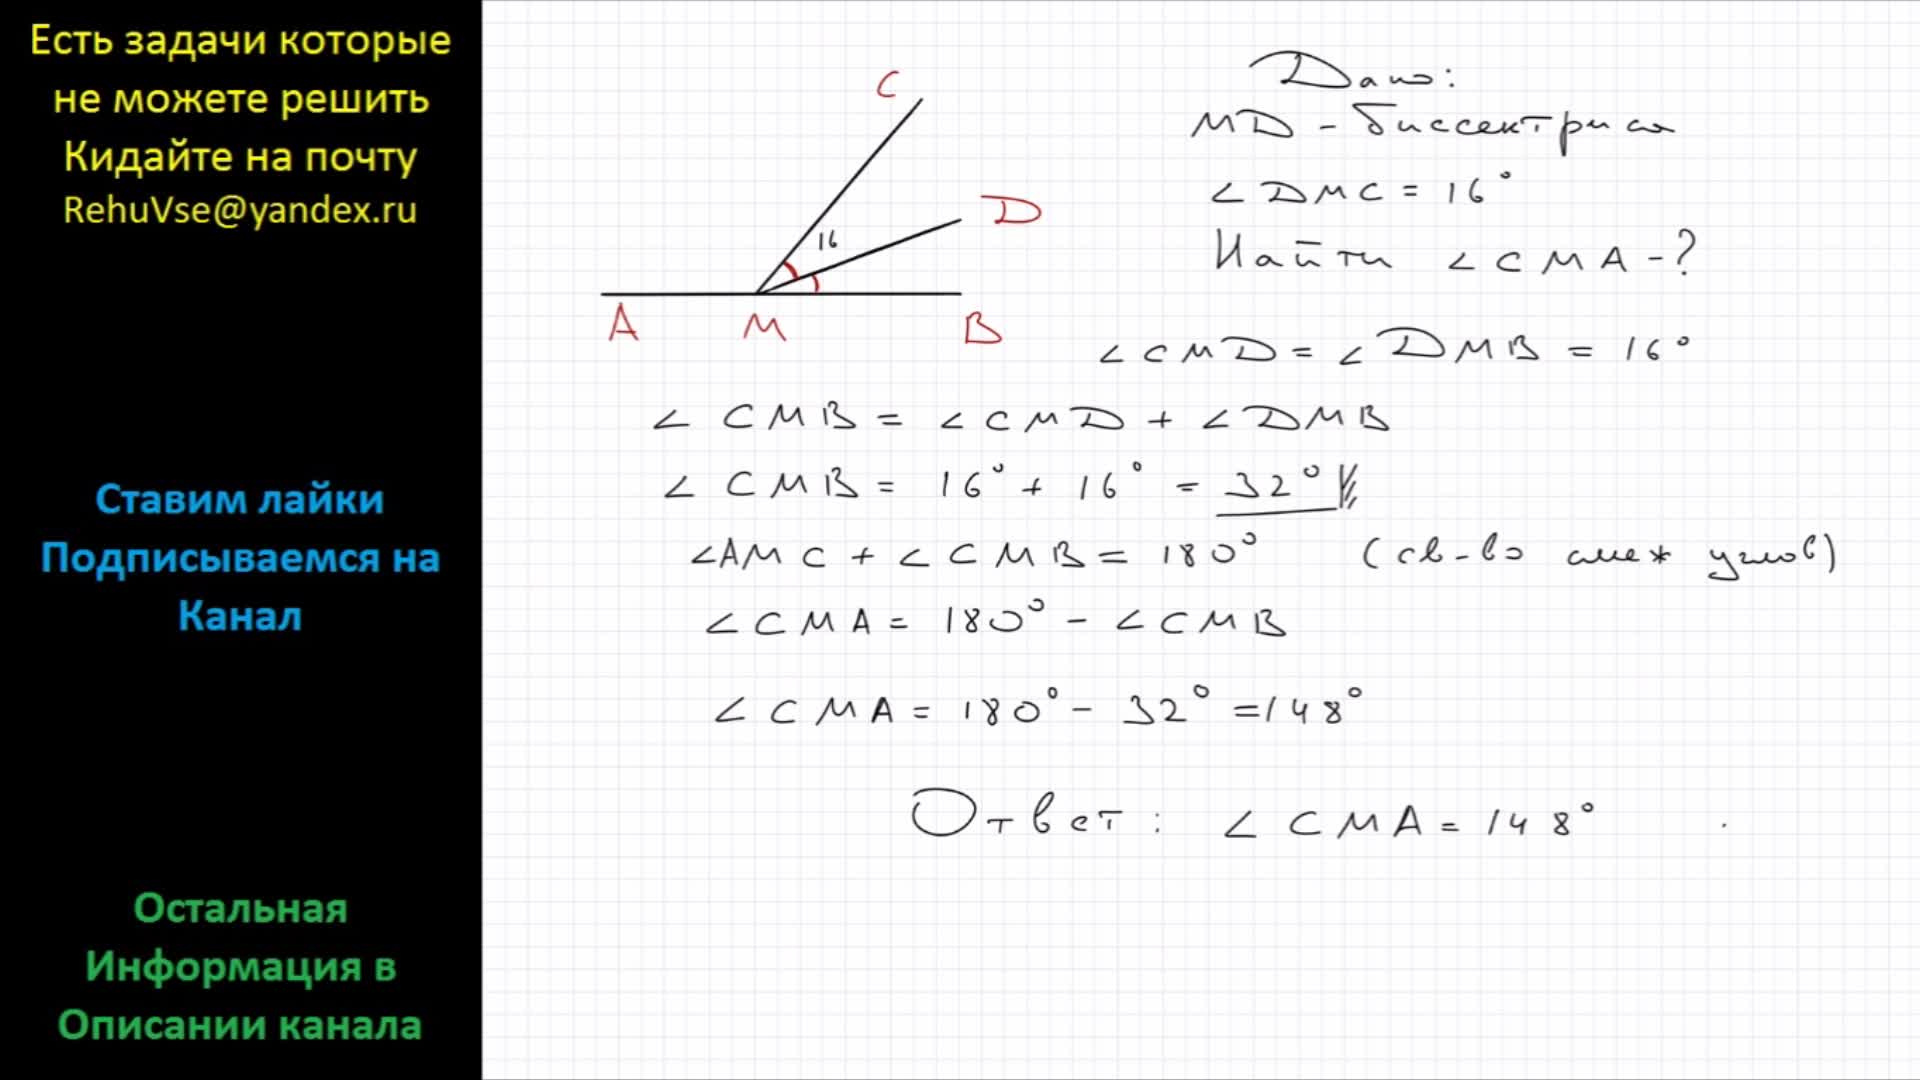 Есть задачи которые
не можете решить
Кидайте на почту
RehuVse@yandex.ru
Ставим лайки
Подписываемся на
Канал
Остальная
Информация в
Описании канала
C
D
16
A M B
Дано:
MD - биссектриса
∠DMC = 16°
Найти ∠CMA - ?
∠CMD = ∠DMB = 16°
∠CMB = ∠CMD + ∠DMB
∠CMB = 16° + 16° = 32°
∠AMC + ∠CMB = 180° (св-во смеж углов)
∠CMA = 180° - ∠CMB
∠CMA = 180° - 32° = 148°
Ответ: ∠CMA = 148°